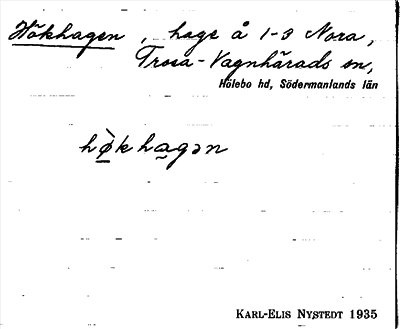 Hökhagen, hage å 1-3 Nora,
Trosa-Vagnhärads sn,
Hölebo hd, Södermanlands län
hø̀khagən
KARL-ELIS NYSTEDT 1935